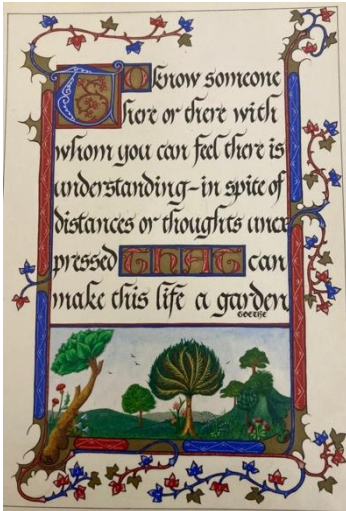 To know someone
here or there with
whom you can feel there is
understanding–in spite of
distances or thoughts unex
pressed THAT can
make this life a garden
GOETHE